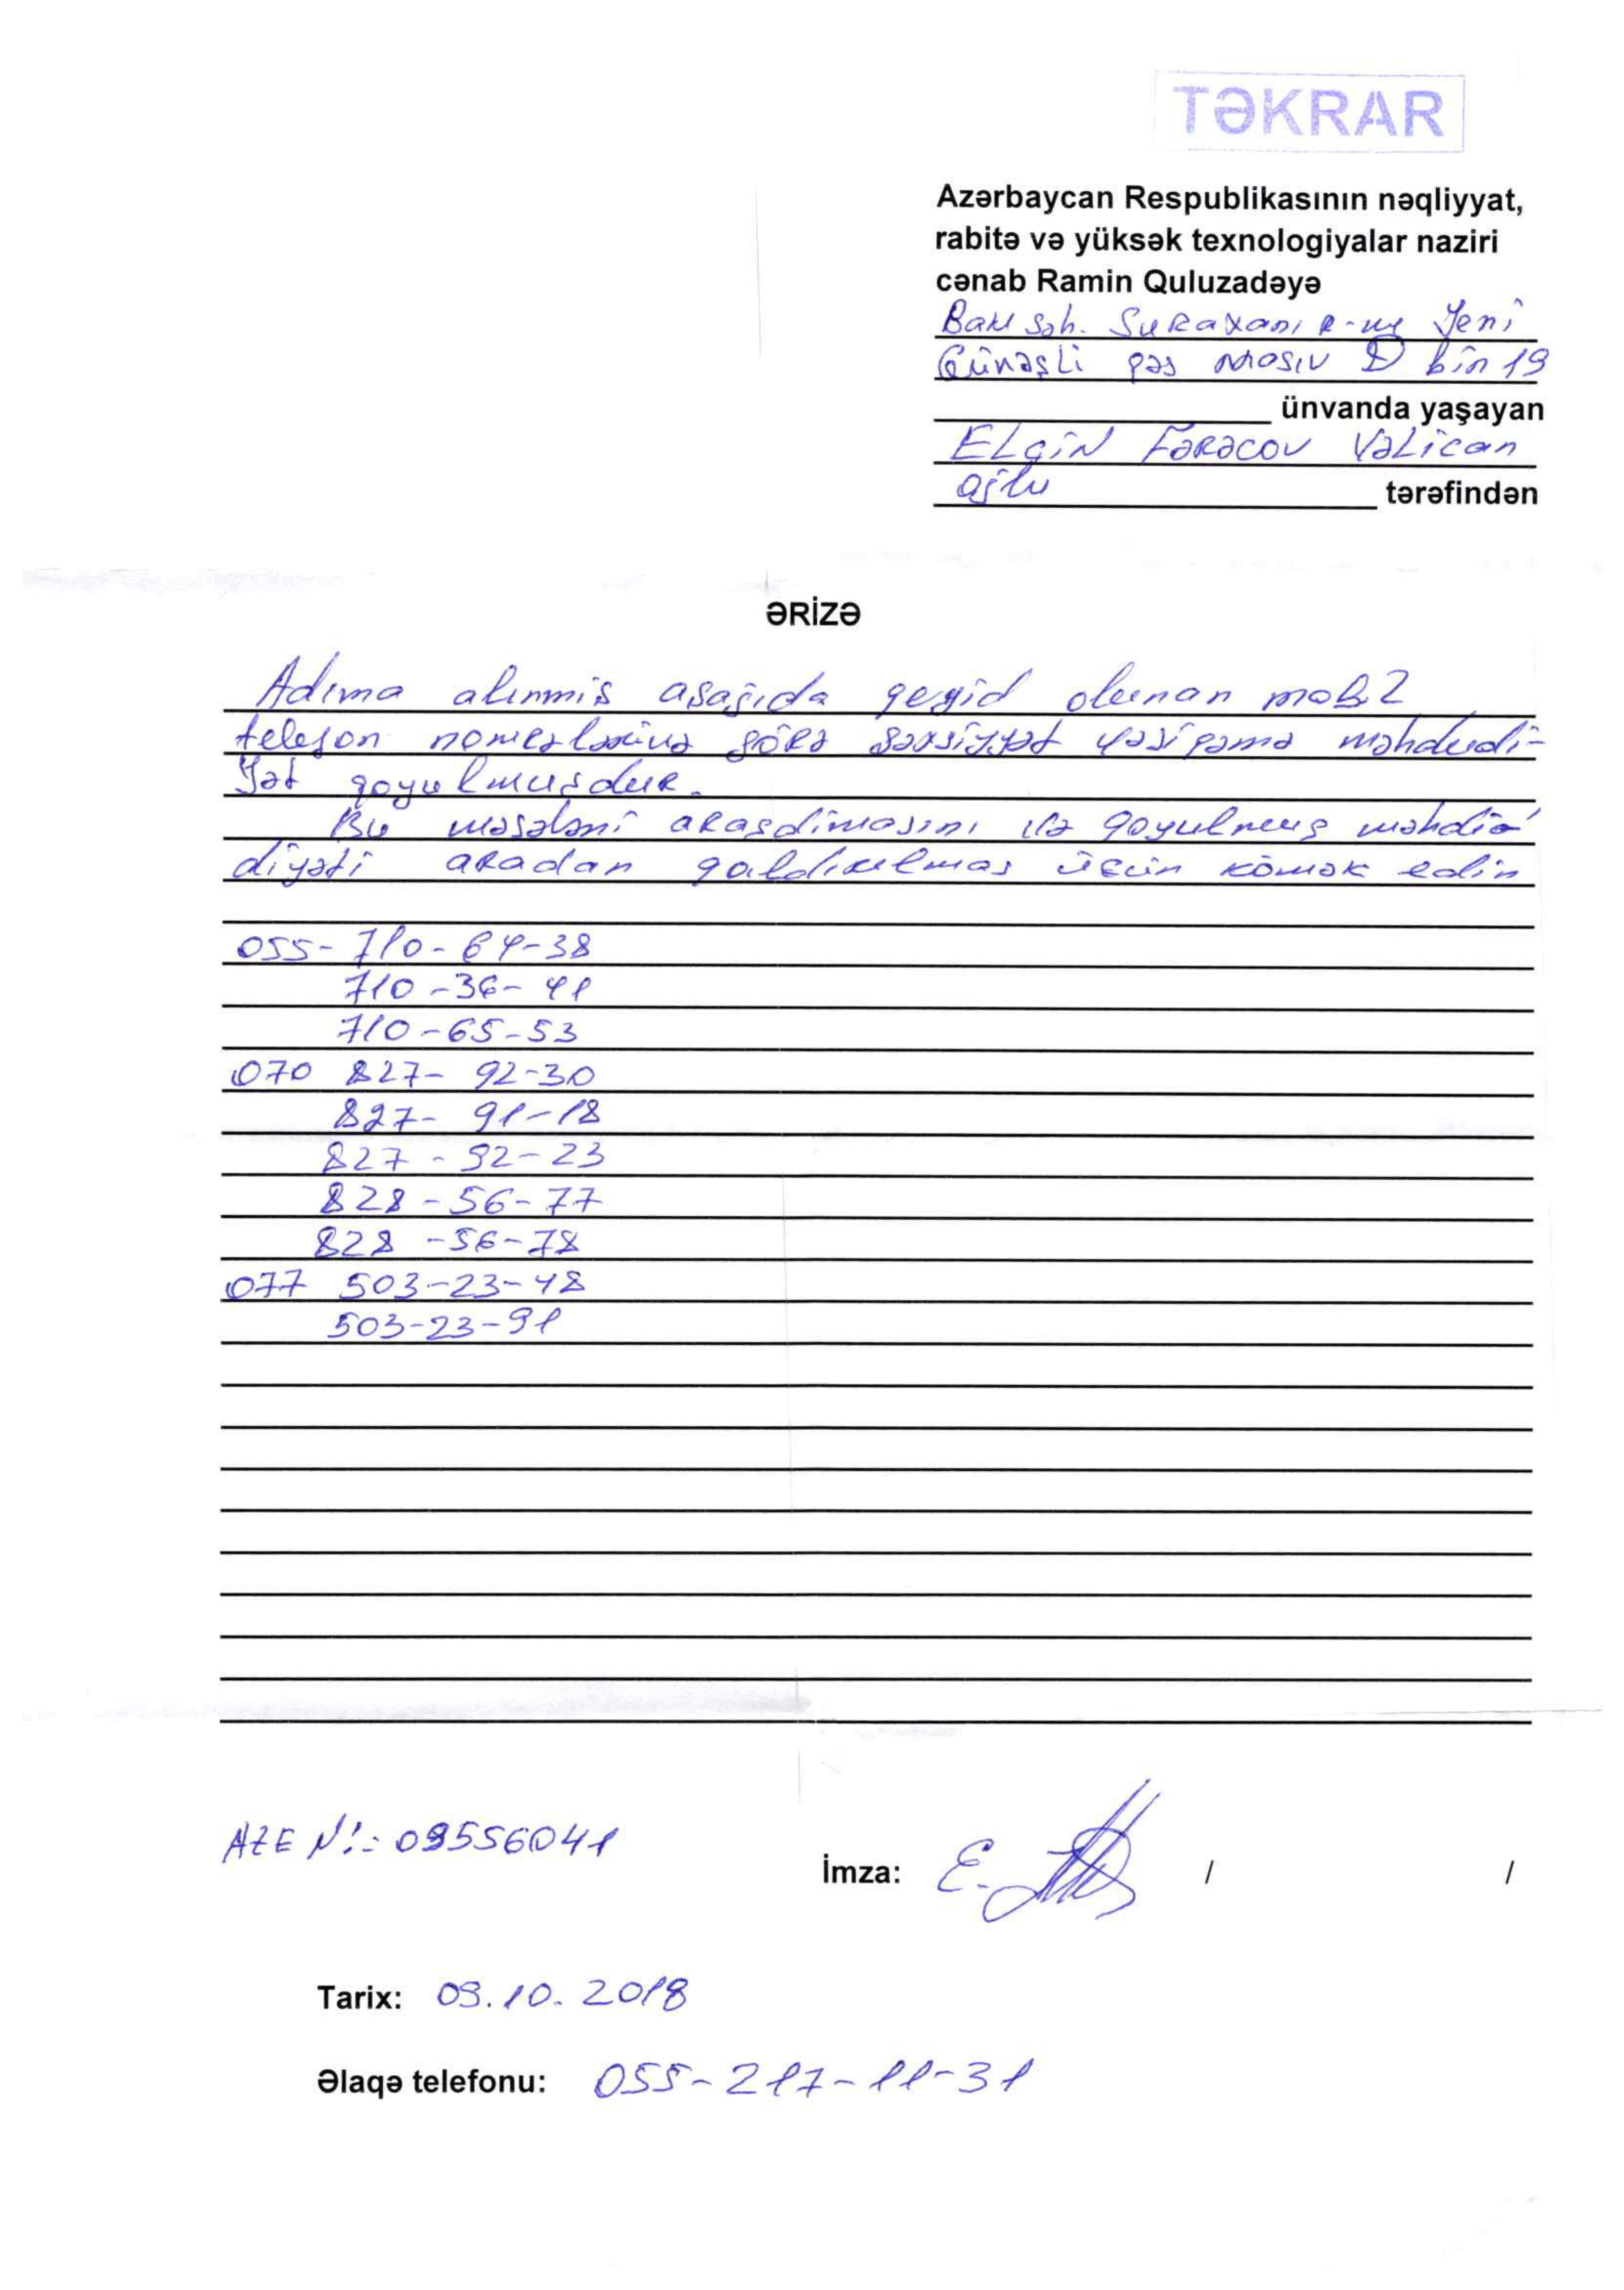 TƏKRAR
Azərbaycan Respublikasının nəqliyyat,
rabitə və yüksək texnologiyalar naziri
cənab Ramin Quluzadəyə
Bakı şəh. Suraxanı r-nu Yeni
Günəşli qəs masıv D bin 19
ünvanda yaşayan
Elçin Fərəcov Vəlican
oğlu tərəfindən
ƏRİZƏ
Adıma alınmış aşağıda qeyid olunan mobil
telefon nomerlərinə görə şəxsiyyət vəsiqəmə məhdudi-
yət qoyulmuşdur.
Bu məsələni araşdimasını ilə qoyulmuş
diyəti aradan üçün kömək edin
055-710-64-38
710-36-41
710-65-53
070 827-92-30
827-91-18
827-92-23
828-56-77
828-56-78
077 503-23-48
503-23-91
AZE №:- 09556041
İmza: / /
Tarix: 09.10.2018
Əlaqə telefonu: 055-217-11-31